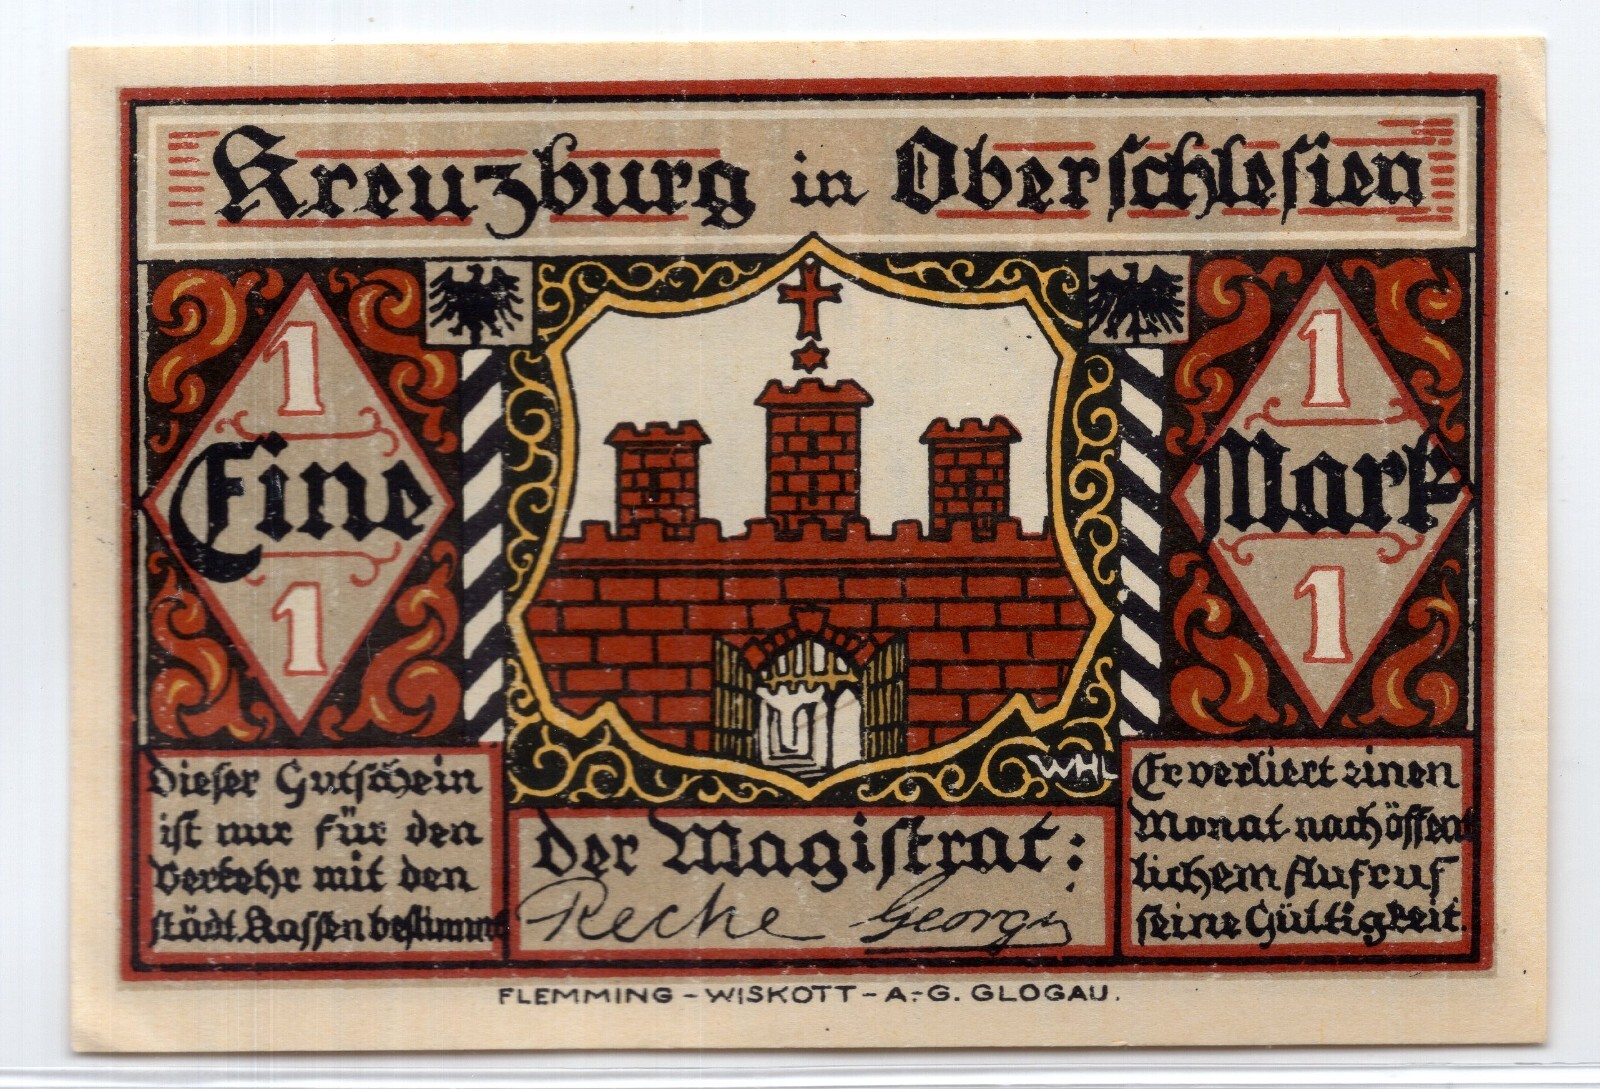 Kreuzburg in Oberschlesien
1
Eine
1
1
Mark
1
WHL
Dieser Gutschein
ist nur für den
Verkehr mit den
städt. Kassen bestimmt
der Magistrat:
Recke Georgy
Er verliert einen
Monat nach öffent
lichem Aufruf
seine Gültigkeit.
FLEMMING-WISKOTT-A.-G. GLOGAU.